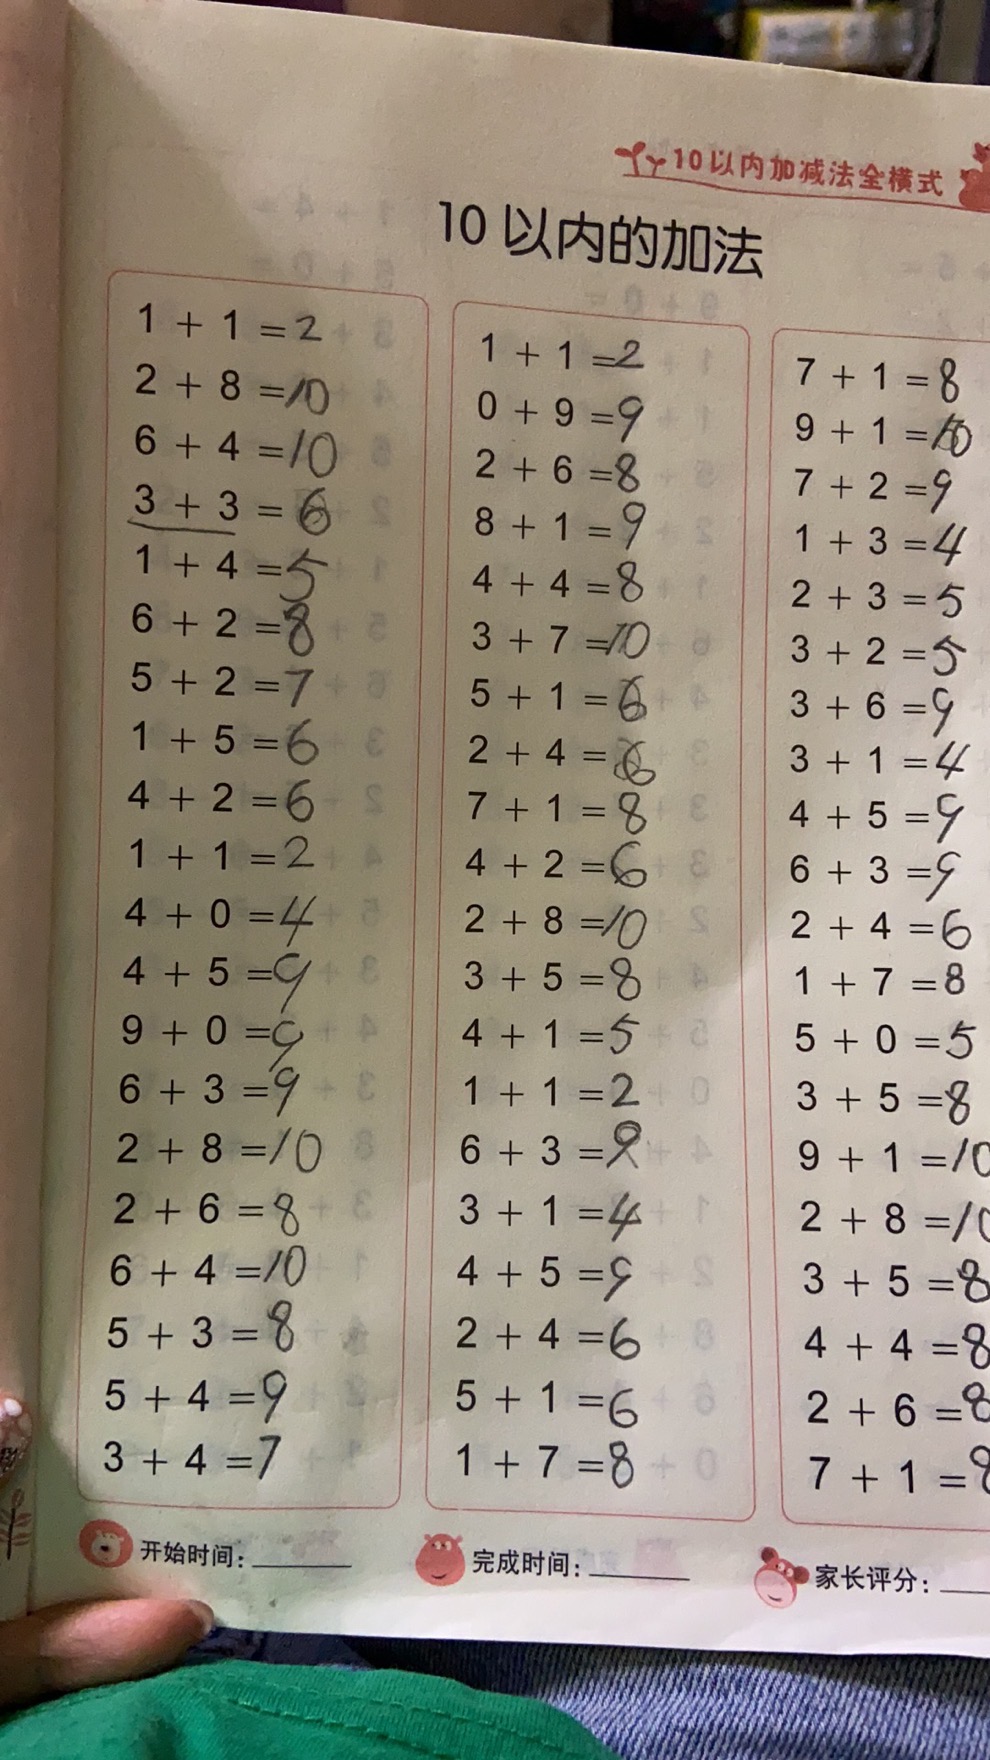 10以内加减法全横式
10 以内的加法
1 + 1 = 2
2 + 8 = 10
6 + 4 = 10
3 + 3 = 6
1 + 4 = 5
6 + 2 = 8
5 + 2 = 7
1 + 5 = 6
4 + 2 = 6
1 + 1 = 2
4 + 0 = 4
4 + 5 = 9
9 + 0 = 9
6 + 3 = 9
2 + 8 = 10
2 + 6 = 8
6 + 4 = 10
5 + 3 = 8
5 + 4 = 9
3 + 4 = 7
1 + 1 = 2
0 + 9 = 9
2 + 6 = 8
8 + 1 = 9
4 + 4 = 8
3 + 7 = 10
5 + 1 = 6
2 + 4 = 6
7 + 1 = 8
4 + 2 = 6
2 + 8 = 10
3 + 5 = 8
4 + 1 = 5
1 + 1 = 2
6 + 3 = 9
3 + 1 = 4
4 + 5 = 9
2 + 4 = 6
5 + 1 = 6
1 + 7 = 8
7 + 1 = 8
9 + 1 = 10
7 + 2 = 9
1 + 3 = 4
2 + 3 = 5
3 + 2 = 5
3 + 6 = 9
3 + 1 = 4
4 + 5 = 9
6 + 3 = 9
2 + 4 = 6
1 + 7 = 8
5 + 0 = 5
3 + 5 = 8
9 + 1 = 10
2 + 8 = 10
3 + 5 = 8
4 + 4 = 8
2 + 6 = 8
7 + 1 = 8
开始时间：
完成时间：
家长评分：